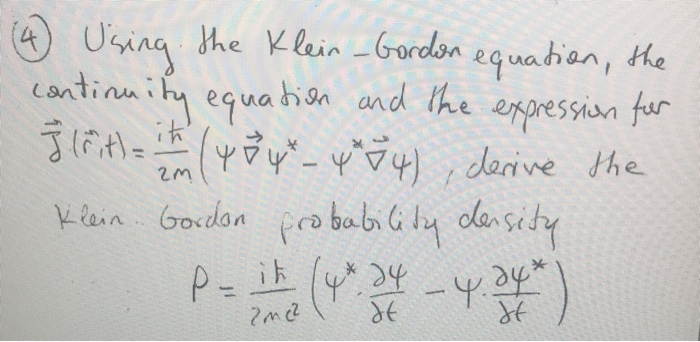 (4) Using the Klein-Gordon equation, the
continuity equation and the expression for
J⃗(r⃗,t) = iħ/2m (ψ∇⃗ψ* − ψ*∇⃗ψ), derive the
Klein-Gordon probability density
P = iħ/2mc² (ψ* ∂ψ/∂t − ψ ∂ψ*/∂t)